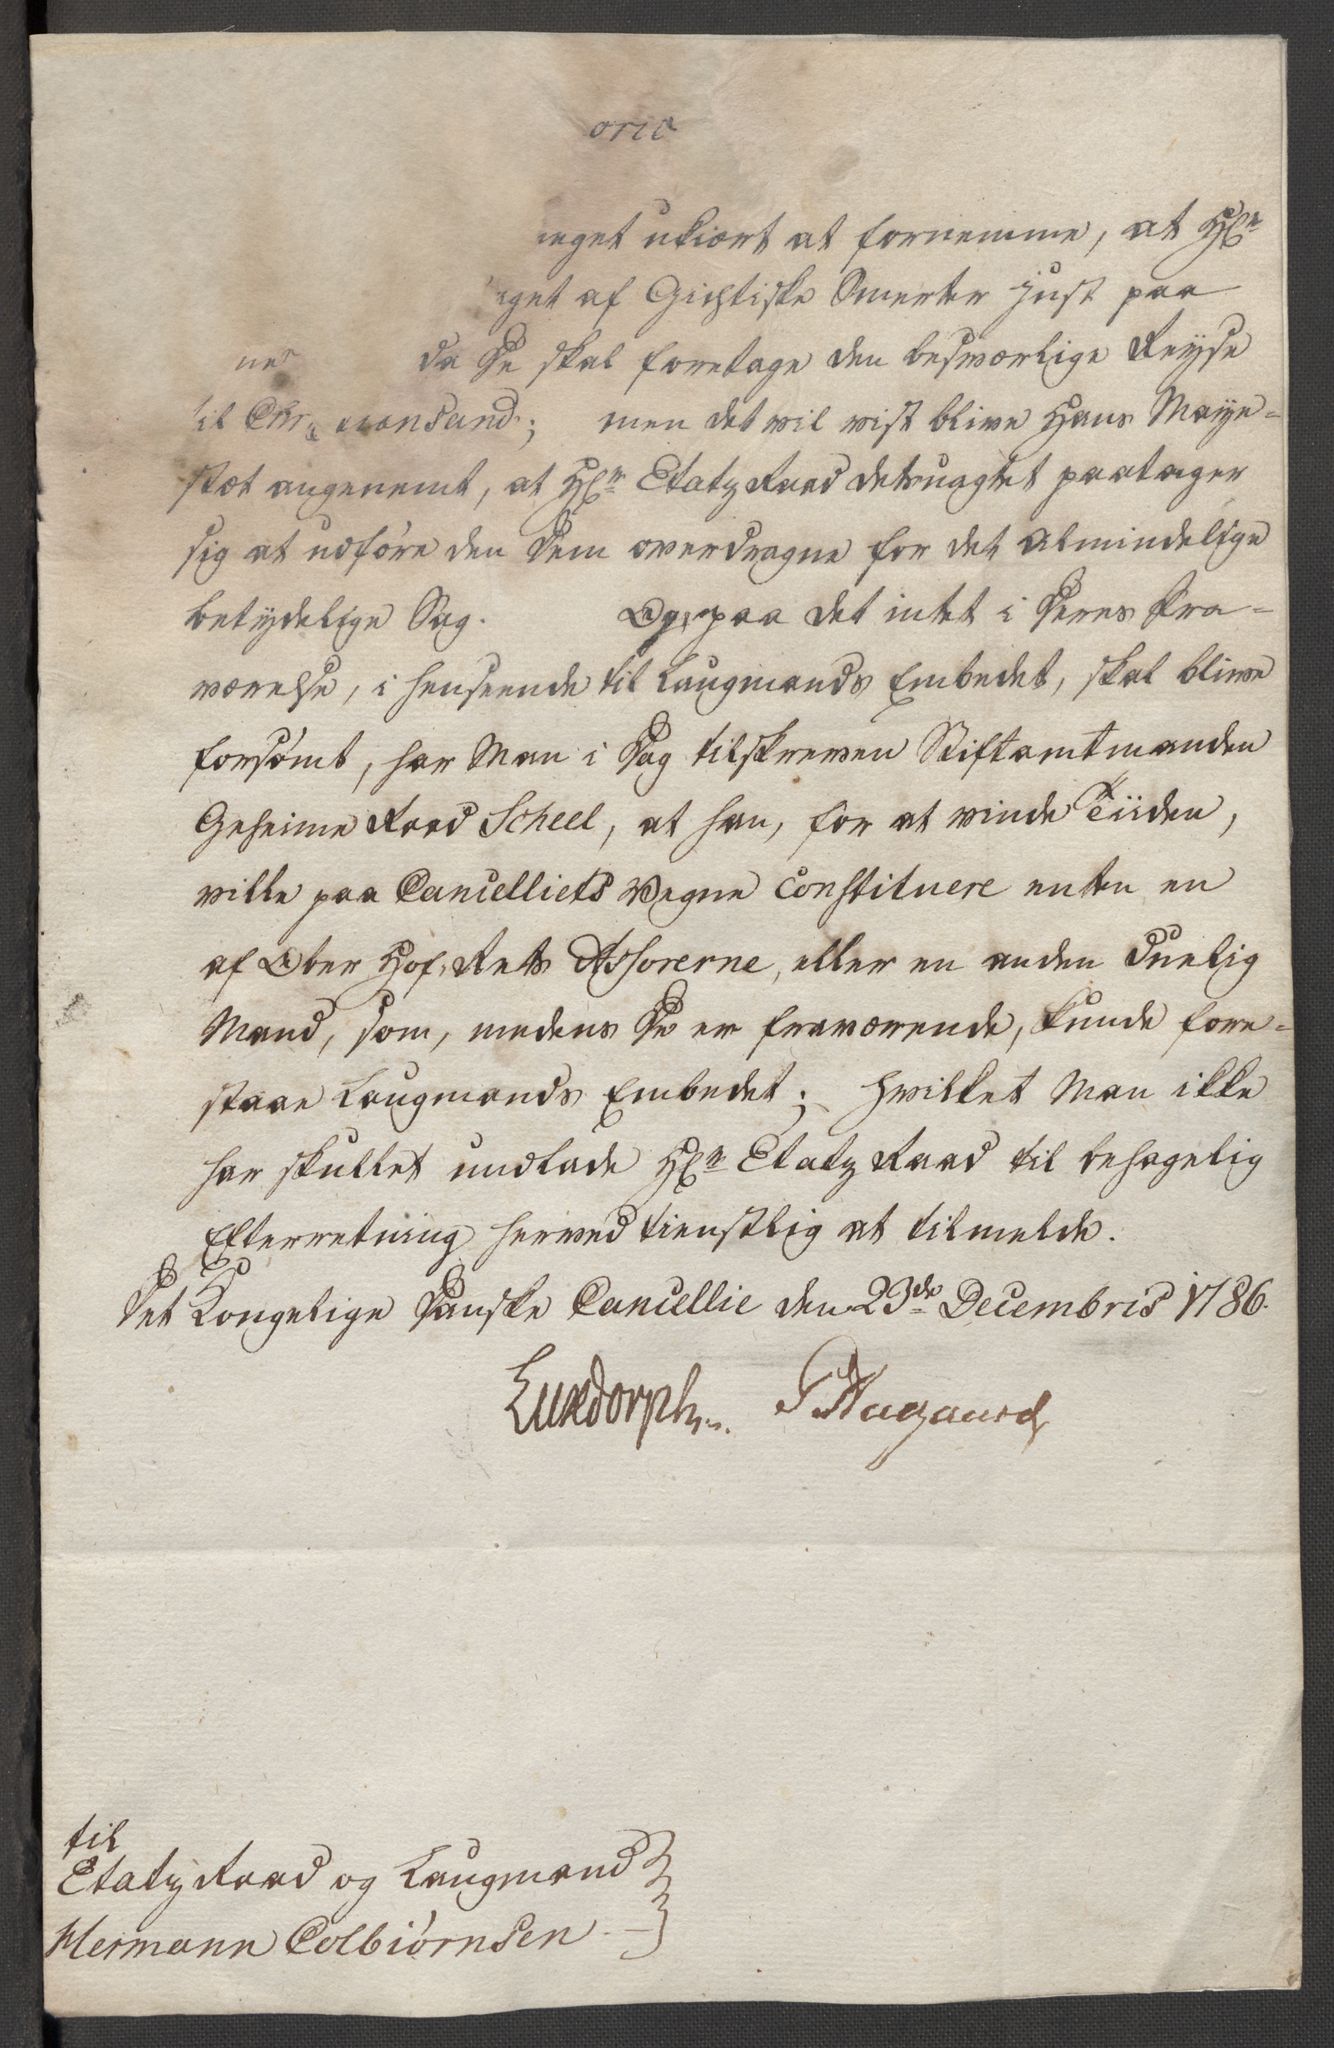 meget ukiært at fornemme, at Hr:
af Gichtiske Smerter just paa
da De skal foretage den besværlige Reyse
til Christiansand; men det vil vist blive Hans Maye=
stæt angenemt, at Hr: Etatz Raad detuagtet paatager
sig at udføre den Dem overdragne for det almindelige
betydelige Sag. Og, paa det intet i Deres Fra=
værelse, i henseende til Laugmands Embedet, skal blive
forsømt, har Man i Dag tilskreven Stiftamtmanden
Geheime Raad Scheel, at han, for at vinde Tiiden,
ville paa Cancelliets Vegne constituere enten en
af Ober Hof-Rets Assorerne, eller en anden Duelig
Mand, som, medens De er fraværende, kunde fore=
staae Laugmands Embedet; hvilket Man ikke
har skullet undlade Hr: Etatz Raad til behagelig
Efterretning herved tienstlig at tilmelde.
Det Kongelige Danske Cancellie den 23de Decembris 1786.
Luxdorph. P Aagaard
til
Etatz Raad og Laugmand
Hermann Colbiørnsen